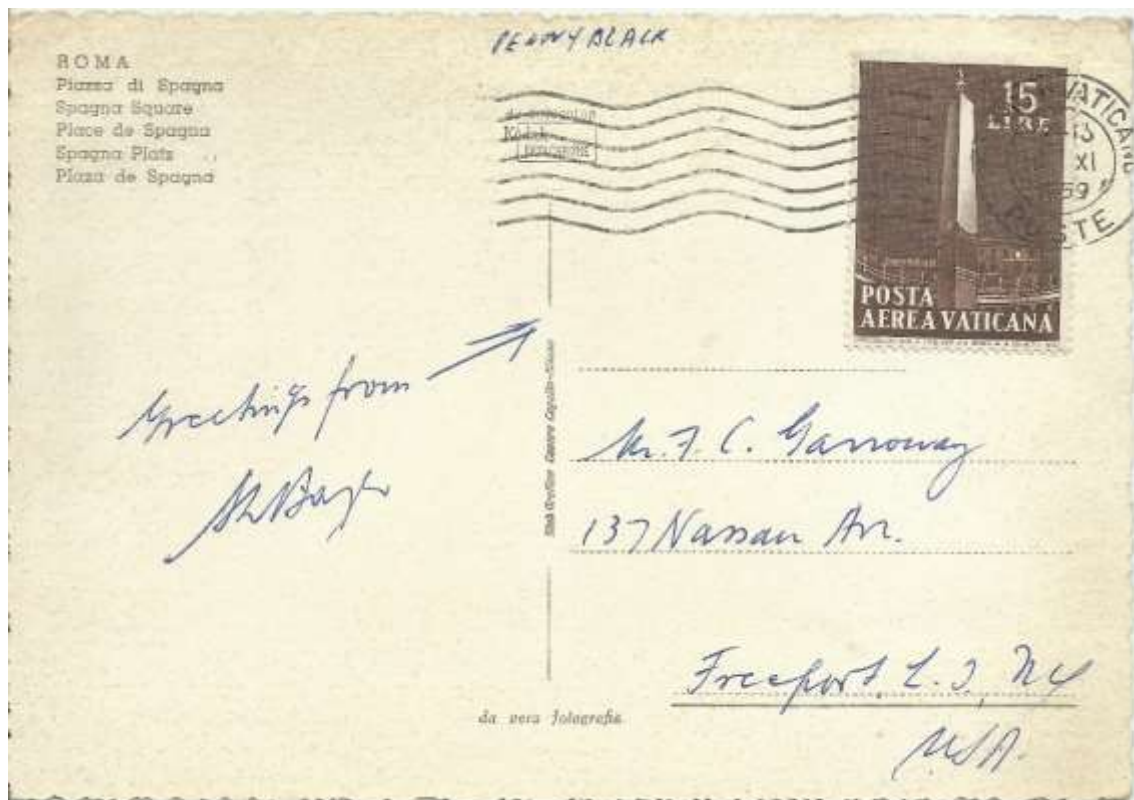 PENNY BLACK
ROMA
Piazza di Spagna
Spagna Square
Place de Spagna
Spagna Platz
Plaza de Spagna
Kodak
15
LIRE
POSTA
AEREA VATICANA
VATICANE
13
XI
59
POSTE
Greetings from
Mr. F. C. Garroway
137 Nassau Av.
Freeport L. I. NY
USA.
da vera fotografia